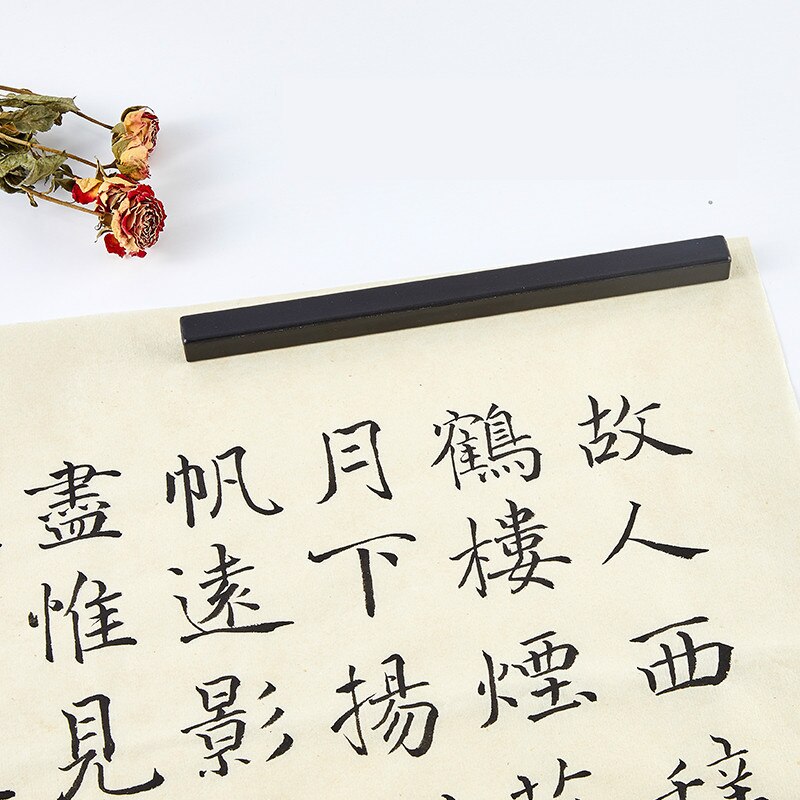 故人西辭
鶴樓煙花
月下揚
帆遠影
盡惟見